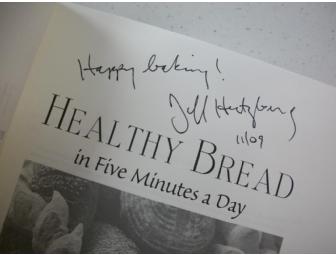 Happy baking!
Jeff Hertzberg
11/09
HEALTHY BREAD
in Five Minutes a Day